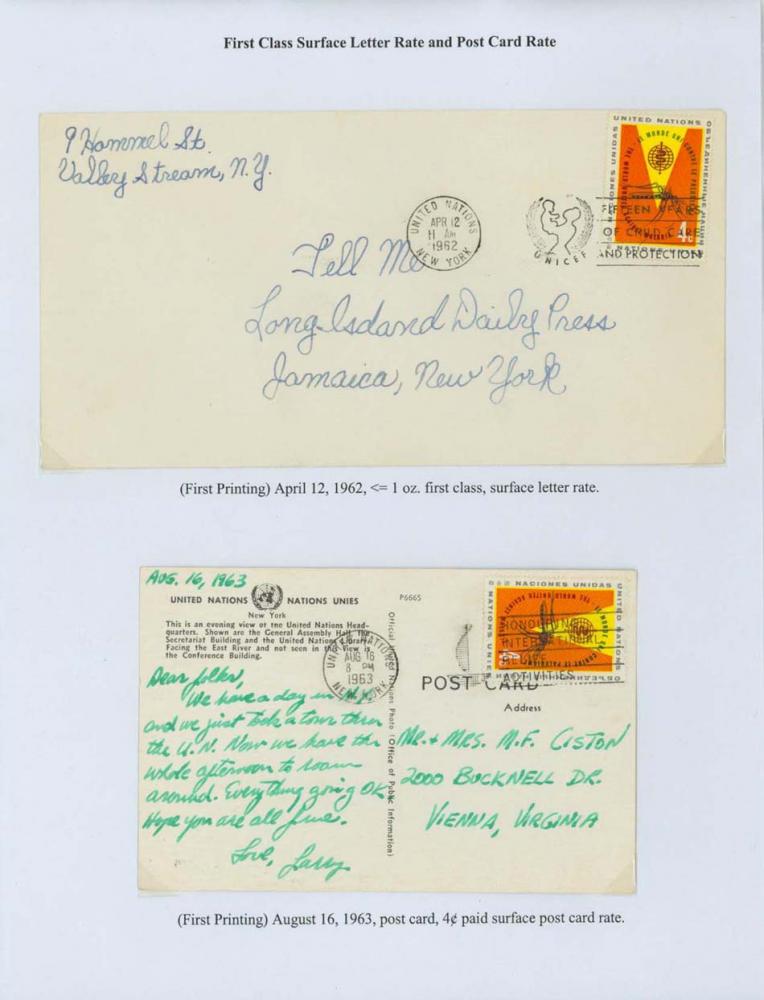 First Class Surface Letter Rate and Post Card Rate
9 Hammel St.
Valley Stream, N.Y.
UNITED NATIONS
APR 12
11 AM
1962
NEW YORK
UNICEF
FIFTEEN YEARS
OF CHILD CARE
AND PROTECTION
UNITED NATIONS
4c
Tell Me
Long Island Daily Press
Jamaica, New York
(First Printing) April 12, 1962, <= 1 oz. first class, surface letter rate.
AUG. 16, 1963
UNITED NATIONS NATIONS UNIES
New York
This is an evening view of the United Nations Head-
quarters. Shown are the General Assembly Hall, the
Secretariat Building and the United Nations Library.
Facing the East River and not seen in this view is
the Conference Building.
P6665
Official United Nations Photo (Office of Public Information)
UNITED NATIONS
AUG 16
8 PM
1963
NEW YORK
NACIONES UNIDAS
HONOURING
INTERNATIONAL
RELIEF
ACTIVITIES
POST CARD
Address
Dear folks,
We have a day in N.Y.
and we just took a tour thru
the U.N. Now we have the
whole afternoon to roam
around. Everything going OK.
Hope you are all fine.
Love, Larry
MR. + MRS. M.F. CISTON
2000 BUCKNELL DR.
VIENNA, VIRGINIA
(First Printing) August 16, 1963, post card, 4¢ paid surface post card rate.